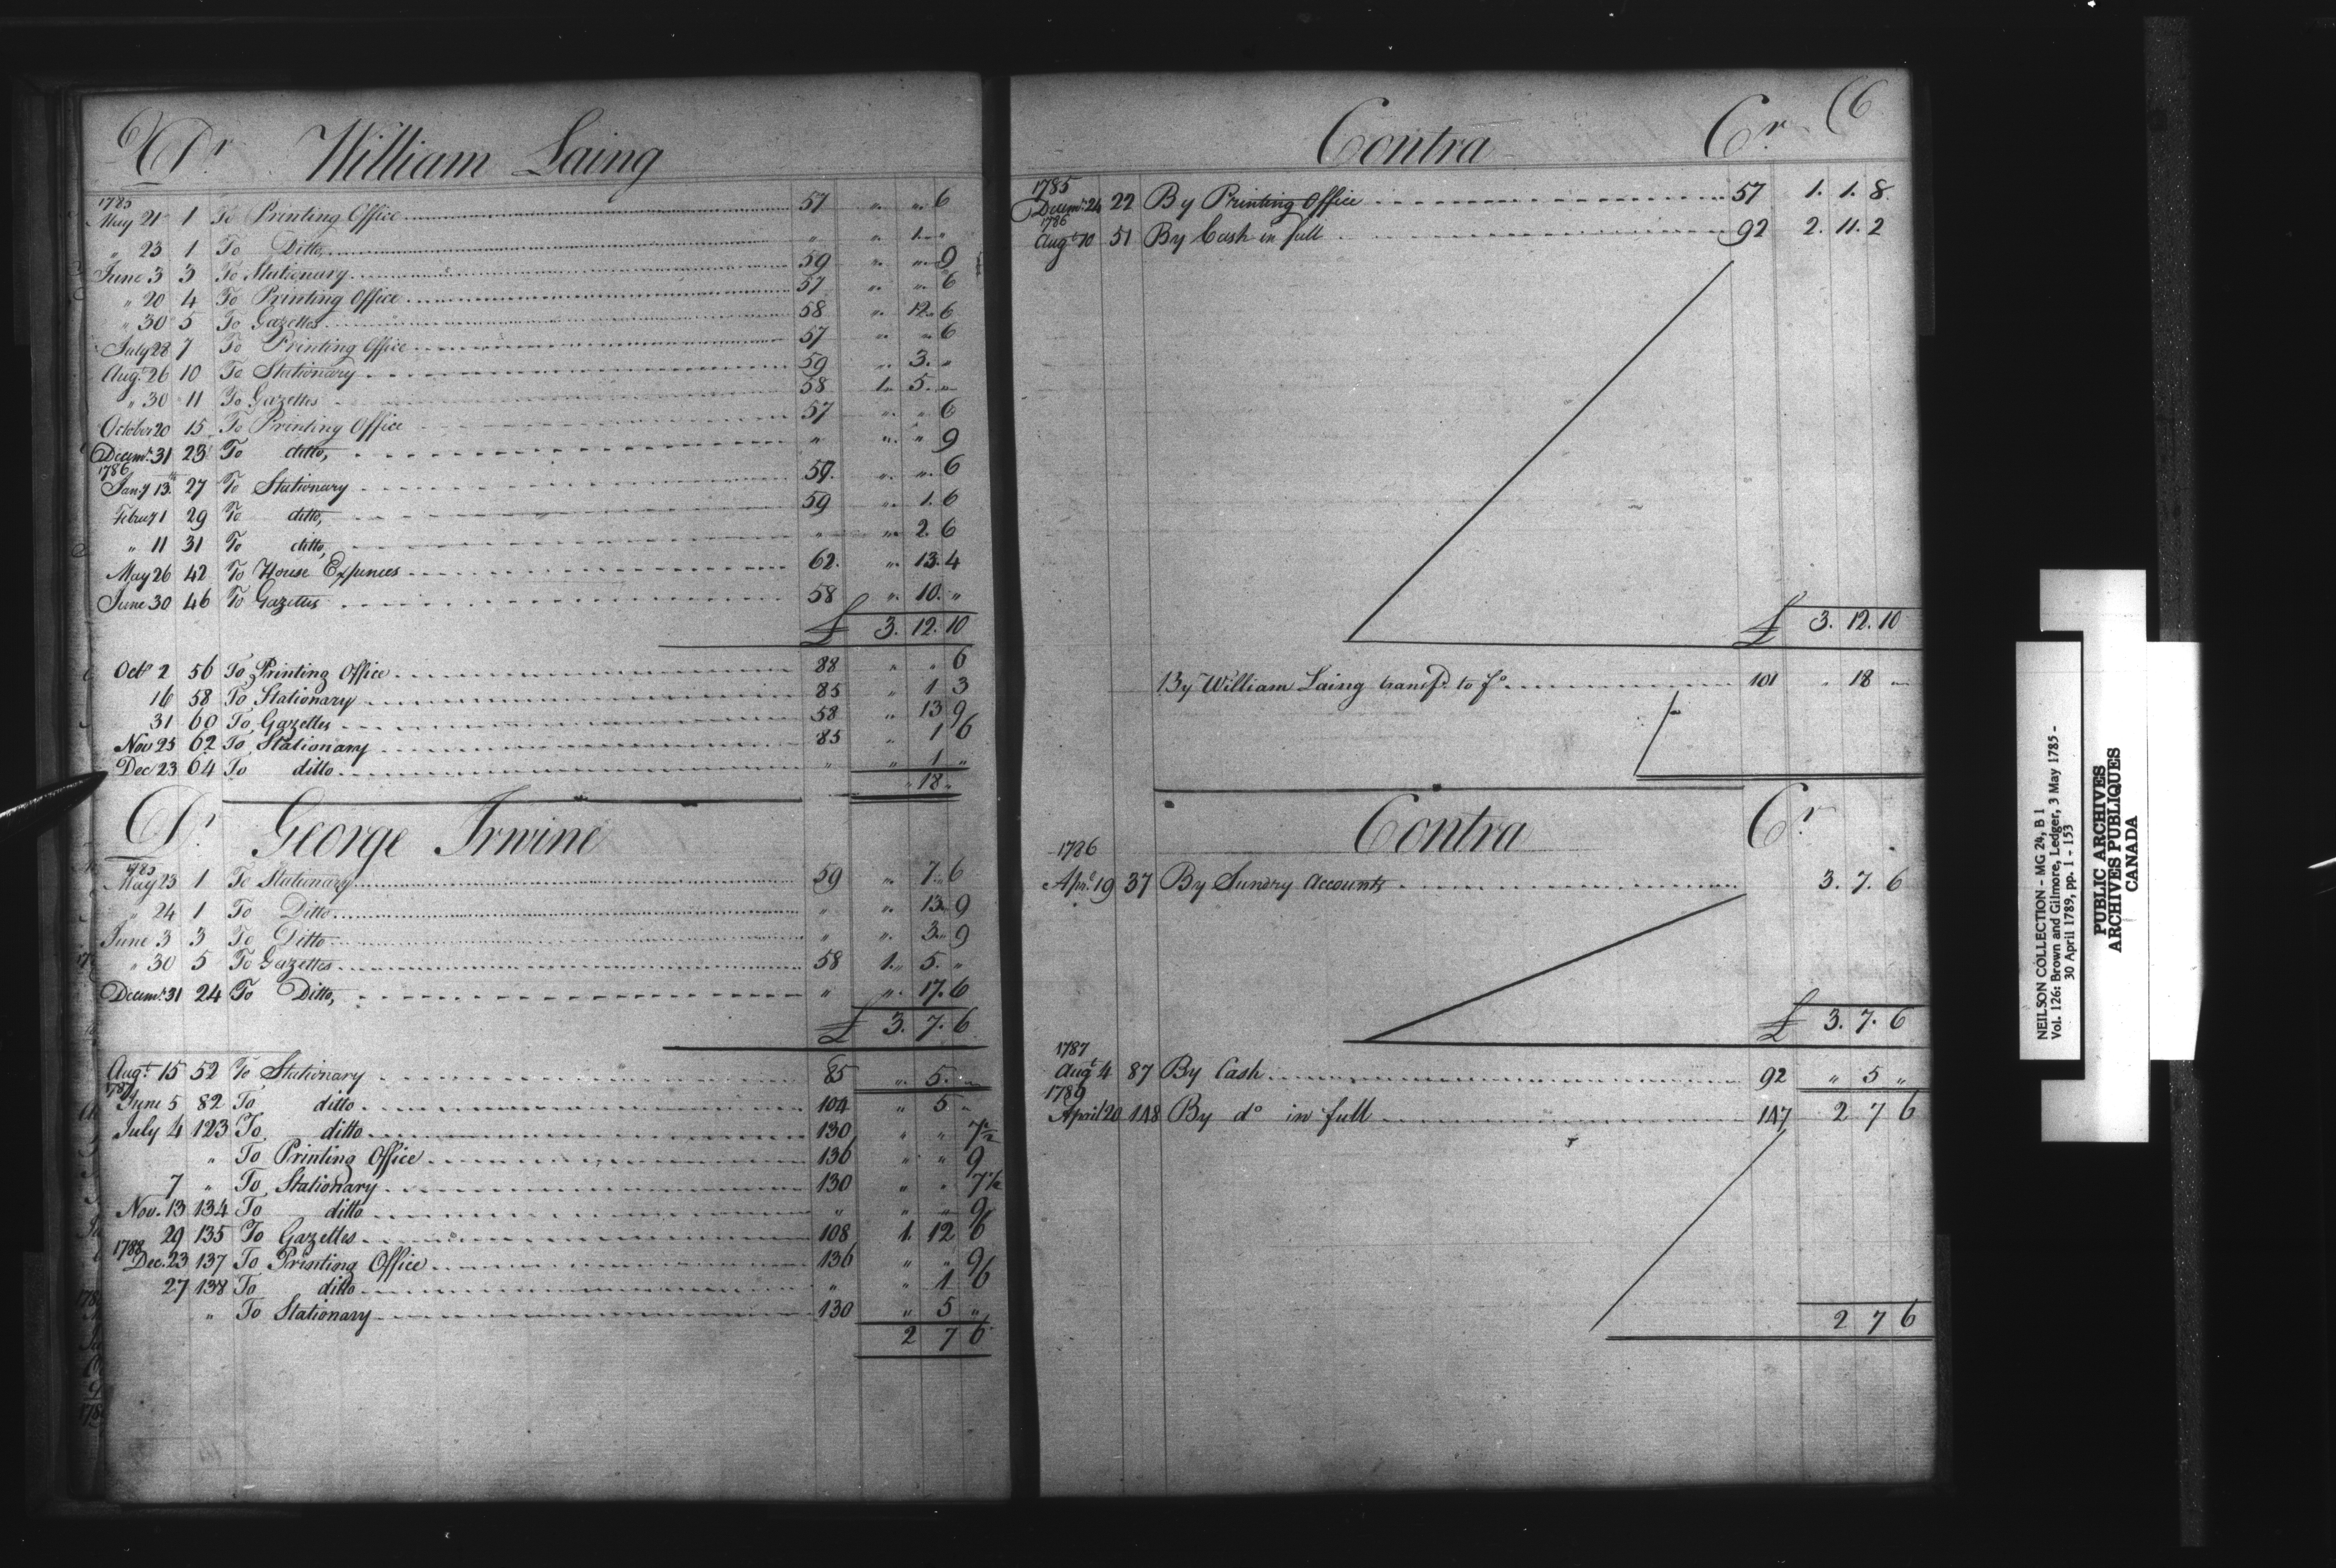 6 Dr William Laing
1785
May 21 1 To Printing Office 57 " " 6
" 23 1 To Ditto, " " 1 "
June 3 3 To Stationary 59 " " 9
" 20 4 To Printing Office 57 " " 6
" 30 5 To Gazettes 58 " 12 6
July 28 7 To Printing Office 57 " " 6
Augt. 26 10 To Stationary 59 " 3 "
" 30 11 To Gazettes 58 1 5 "
October 20 15 To Printing Office 57 " " 6
Decemr. 31 23 To ditto, " " " 9
1786
Jany 13th 27 To Stationary 59 " " 6
Februy 1 29 To ditto, 59 " 1. 6
" 11 31 To ditto, " " 2 6
May 26 42 To House Expences 62. " 13. 4
June 30 46 To Gazettes 58 " 10. "
£ 3. 12. 10
Octr 2 56 To Printing Office 88 " " 6
16 58 To Stationary 85 " 1 3
31 60 To Gazettes 58 " 13 9
Nov 25 62 To Stationary 85 " 1 6
Dec 23 64 To ditto " " 1 "
" 18 "
Dr. George Irwine
1785
May 23 1 To Stationary 59 " 7. 6
" 24 1 To Ditto " " 13 9
June 3 3 To Ditto " " 3 9
" 30 5 To Gazettes 58 1. 5. "
Decemr. 31 24 To Ditto, " " 17. 6
£ 3. 7. 6
Augt. 15 52 To Stationary 85 " 5. "
1787
June 5 82 To ditto 104 " 5 "
July 4 123 To ditto 130 " " 7 1/2
" To Printing Office 136 " " 9
7 " To Stationary 130 " " 7 1/2
Nov. 13 134 To ditto " " " 9
29 135 To Gazettes 108 1. 12 6
1788
Dec. 23 137 To Printing Office 136 " " 9
27 138 To ditto " " 1 6
" To Stationary 130 " 5 "
2 7 6
Contra Cr 6
1785
Decemr. 24 22 By Printing Office 57 1. 1. 8
1786
Augt 10 51 By Cash in full 92 2. 11. 2
£ 3. 12. 10
By William Laing transfd. to fo. 101 " 18 "
Contra Cr
1786
Apr. 19 37 By Sundry Accounts 3. 7. 6
£ 3. 7. 6
1787
Augt 4 87 By Cash 92 " 5 "
1789
April 20 148 By do in full 147 2 7 6
2 7 6
NEILSON COLLECTION - MG 24, B 1
Vol. 126: Brown and Gilmore, Ledger, 3 May 1785 -
30 April 1789, pp. 1 - 153
PUBLIC ARCHIVES
ARCHIVES PUBLIQUES
CANADA